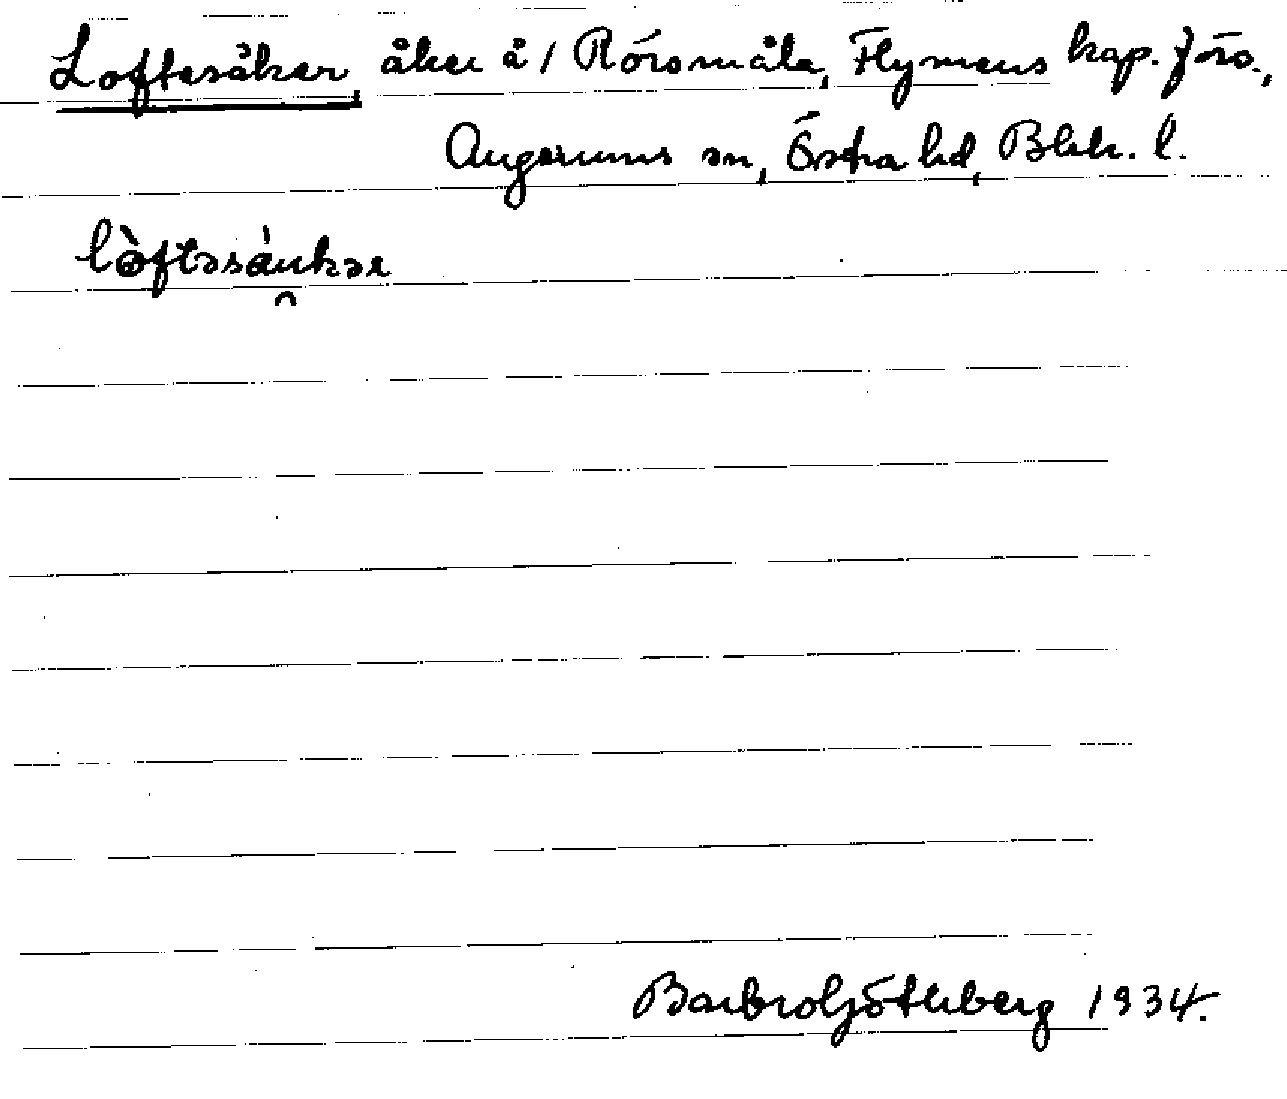 Loftesåker, åker å 1 Rörsmåla, Flymens kap. förs.,
Augerums sn, Östra hd, Blek. l.
lòftəsáukər
Barbro Götheberg 1934.